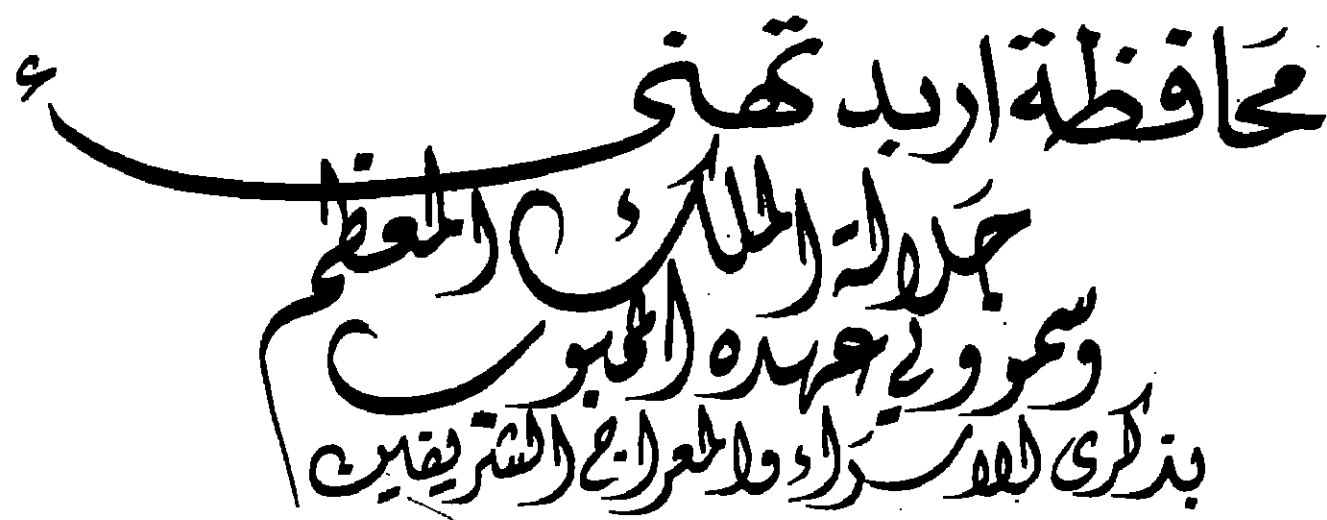 محافظة اربد تهنئ
جلالة الملك المعظم
وسمو ولي عهده المحبوب
بذكرى الاسراء والمعراج الشريفين